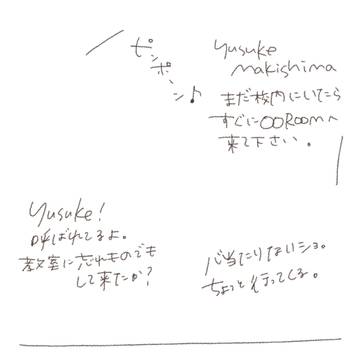 ピンポンン♪
Yusuke
makishima
まだ校内にいてたら
すぐに〇〇ROOMへ
来て下さい。
Yusuke!
呼ばれてるよ。
教室に忘れものでも
して来たか?
心当たりないショ。
ちょっと行ってくる。